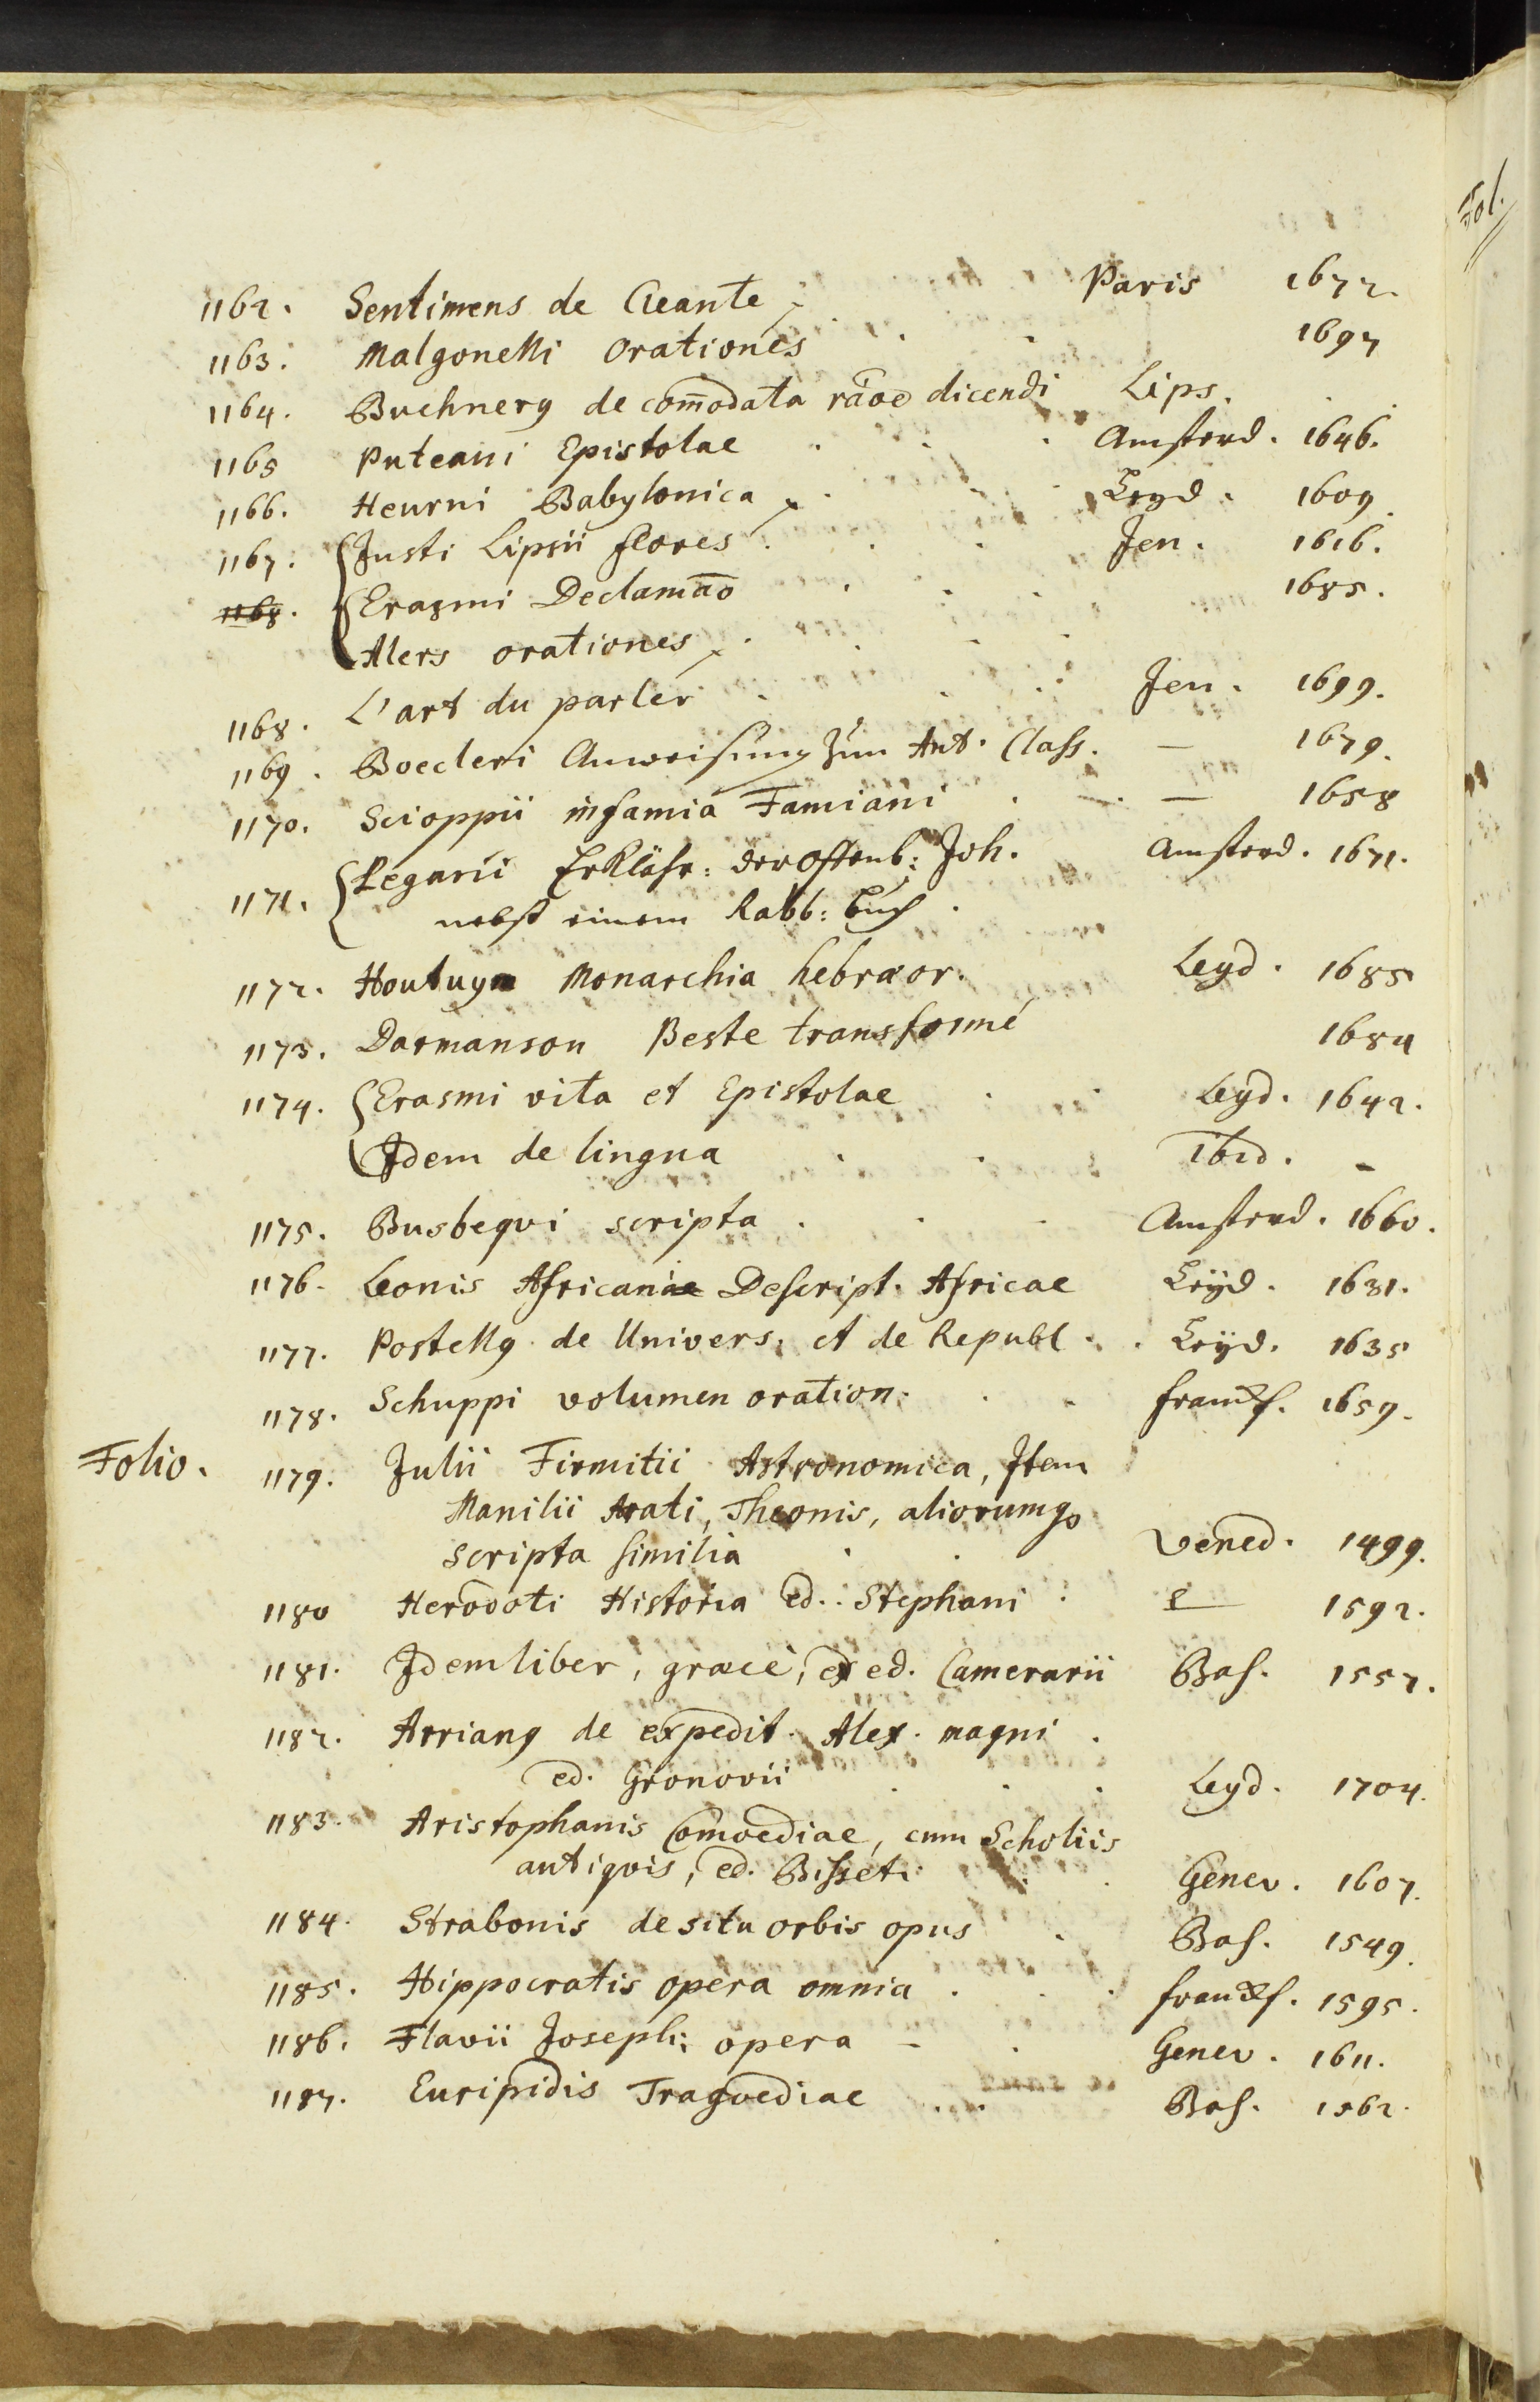 Fol.
1162. Sentimens de Cleante Paris 1672.
1163. Malgonelli Orationes 1697
1164. Buchnerg de com̄odata rāoe dicendi Lips.
1165 Puteani Epistolae Amsterd. 1646.
1166. Heurni Babylonica Leyd. 1609.
1167. Justi Lipsii flores Jen. 1616.
1168. Erasmi Declamāo 1685.
Alers orationes
1168. L'art du parler Jen. 1699.
1169. Boecleri Anweisung zum Aut. Class. — 1679.
1170. Scioppii infamia Famiani — 1658
1171. Legarii Erklähr: der Offenb: Joh. Amsterd. 1671.
nebst einem Rabb: buch
1172. Houtuyn Monarchia hebraeor. Leyd. 1685
1173. Darmanson Beste transformé 1684
1174. Erasmi vita et Epistolae Leyd. 1642.
Idem de lingua Ibid. -
1175. Busbeqvi scripta Amsterd. 1660.
1176. Leonis Africani Descript. Africae Leyd. 1631.
1177. Postellg de Univers. et de Republ. Leyd. 1635
1178. Schuppi volumen oration. Franckf. 1659.
Folio.
1179. Julii Firmitii Astronomica, Item
Manilii Arati, Theonis, aliorumq
scripta similia Vened. 1499.
1180 Herodoti Historia ed. Stephani — 1592.
1181. Idem liber, graece, ex ed. Camerarii Bas. 1557.
1182. Arriang de expedit. Alex. magni
ed. Gronovii Leyd. 1704.
1183. Aristophanis Comoediae, cum Scholiis
antiqvis, ed. Bisseti Genev. 1607.
1184. Strabonis de situ orbis opus Bas. 1549.
1185. Hippocratis opera omnia Franckf. 1595.
1186. Flavii Josephi opera Genev. 1611.
1187. Euripidis Tragoediae Bas. 1562.